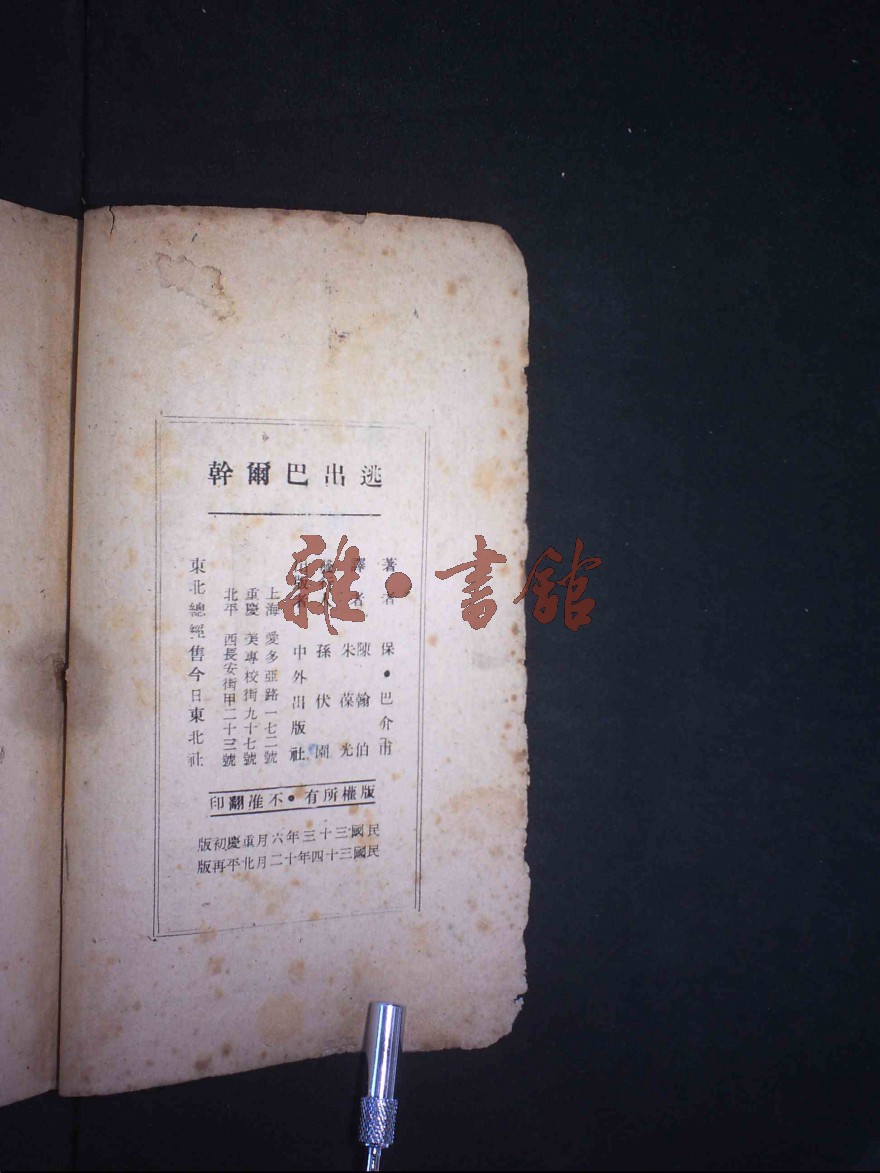 逃出巴爾幹
著者 保•巴介甫
譯者 陳翰伯 朱葆光
孫伏園
中外出版社
上海 愛多亞路一七二號
重慶 美專校街九十七號
北平 西長安街甲二十三號
東北總經售今日東北社
版權所有•不准翻印
民國三十三年六月重慶初版
民國三十四年十二月北平再版
雜•書館